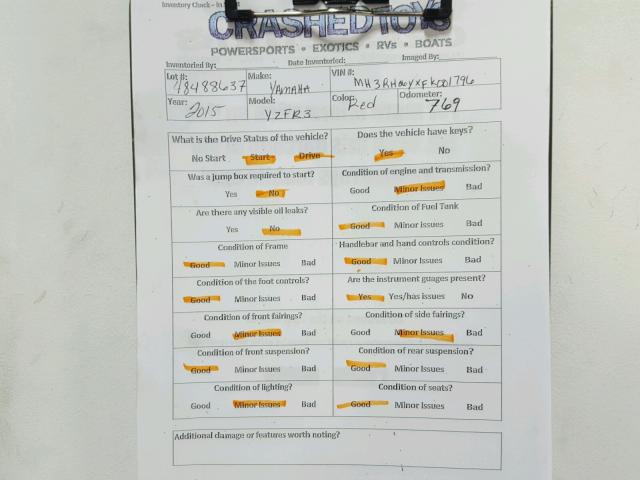 Inventory Check – In
CRASHEDTOYS
POWERSPORTS • EXOTICS • RVs • BOATS
Inventoried By: Date Inventoried: Imaged By:
Lot #: Make: VIN #:
48488637 YAMAHA
Year: Model: Color: Odometer:
2015 YZFR3 Red 769
What is the Drive Status of the vehicle? Does the vehicle have keys?
No Start Start Drive Yes No
Was a jump box required to start? Condition of engine and transmission?
Yes No Good Minor Issues Bad
Are there any visible oil leaks? Condition of Fuel Tank
Yes No Good Minor Issues Bad
Condition of Frame Handlebar and hand controls condition?
Good Minor Issues Bad Good Minor Issues Bad
Condition of the foot controls? Are the instrument guages present?
Good Minor Issues Bad Yes Yes/has issues No
Condition of front fairings? Condition of side fairings?
Good Minor Issues Bad Good Minor Issues Bad
Condition of front suspension? Condition of rear suspension?
Good Minor Issues Bad Good Minor Issues Bad
Condition of lighting? Condition of seats?
Good Minor Issues Bad Good Minor Issues Bad
Additional damage or features worth noting?